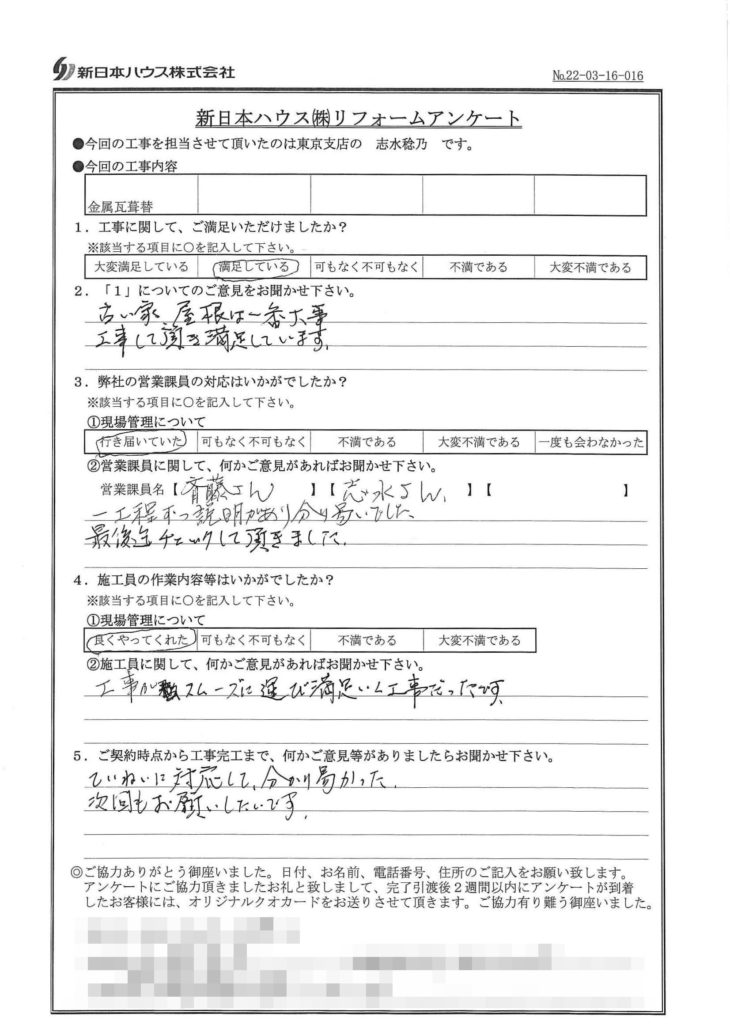 新日本ハウス株式会社
№22-03-16-016
新日本ハウス㈱リフォームアンケート
●今回の工事を担当させて頂いたのは東京支店の 志水稔乃 です。
●今回の工事内容
金属瓦葺替
1．工事に関して、ご満足いただけましたか？
※該当する項目に○を記入して下さい。
大変満足している 満足している 可もなく不可もなく 不満である 大変不満である
2．「1」についてのご意見をお聞かせ下さい。
古い家、屋根は一番大事
工事して頂き満足しています。
3．弊社の営業課員の対応はいかがでしたか？
※該当する項目に○を記入して下さい。
①現場管理について
行き届いていた 可もなく不可もなく 不満である 大変不満である 一度も会わなかった
②営業課員に関して、何かご意見があればお聞かせ下さい。
営業課員名【斉藤さん 】【志水さん 】【 】
一工程ずつ説明があり分り易いでした、
最後迄チェックして頂きました。
4．施工員の作業内容等はいかがでしたか？
※該当する項目に○を記入して下さい。
①現場管理について
良くやってくれた 可もなく不可もなく 不満である 大変不満である
②施工員に関して、何かご意見があればお聞かせ下さい。
工事が スムーズに運び満足いく工事だったです。
5．ご契約時点から工事完工まで、何かご意見等がありましたらお聞かせ下さい。
ていねいに対応して、分かり易かった。
次回もお願いしたいです。
◎ご協力ありがとう御座いました。日付、お名前、電話番号、住所のご記入をお願い致します。
アンケートにご協力頂きましたお礼と致しまして、完了引渡後２週間以内にアンケートが到着
したお客様には、オリジナルクオカードをお送りさせて頂きます。ご協力有り難う御座いました。